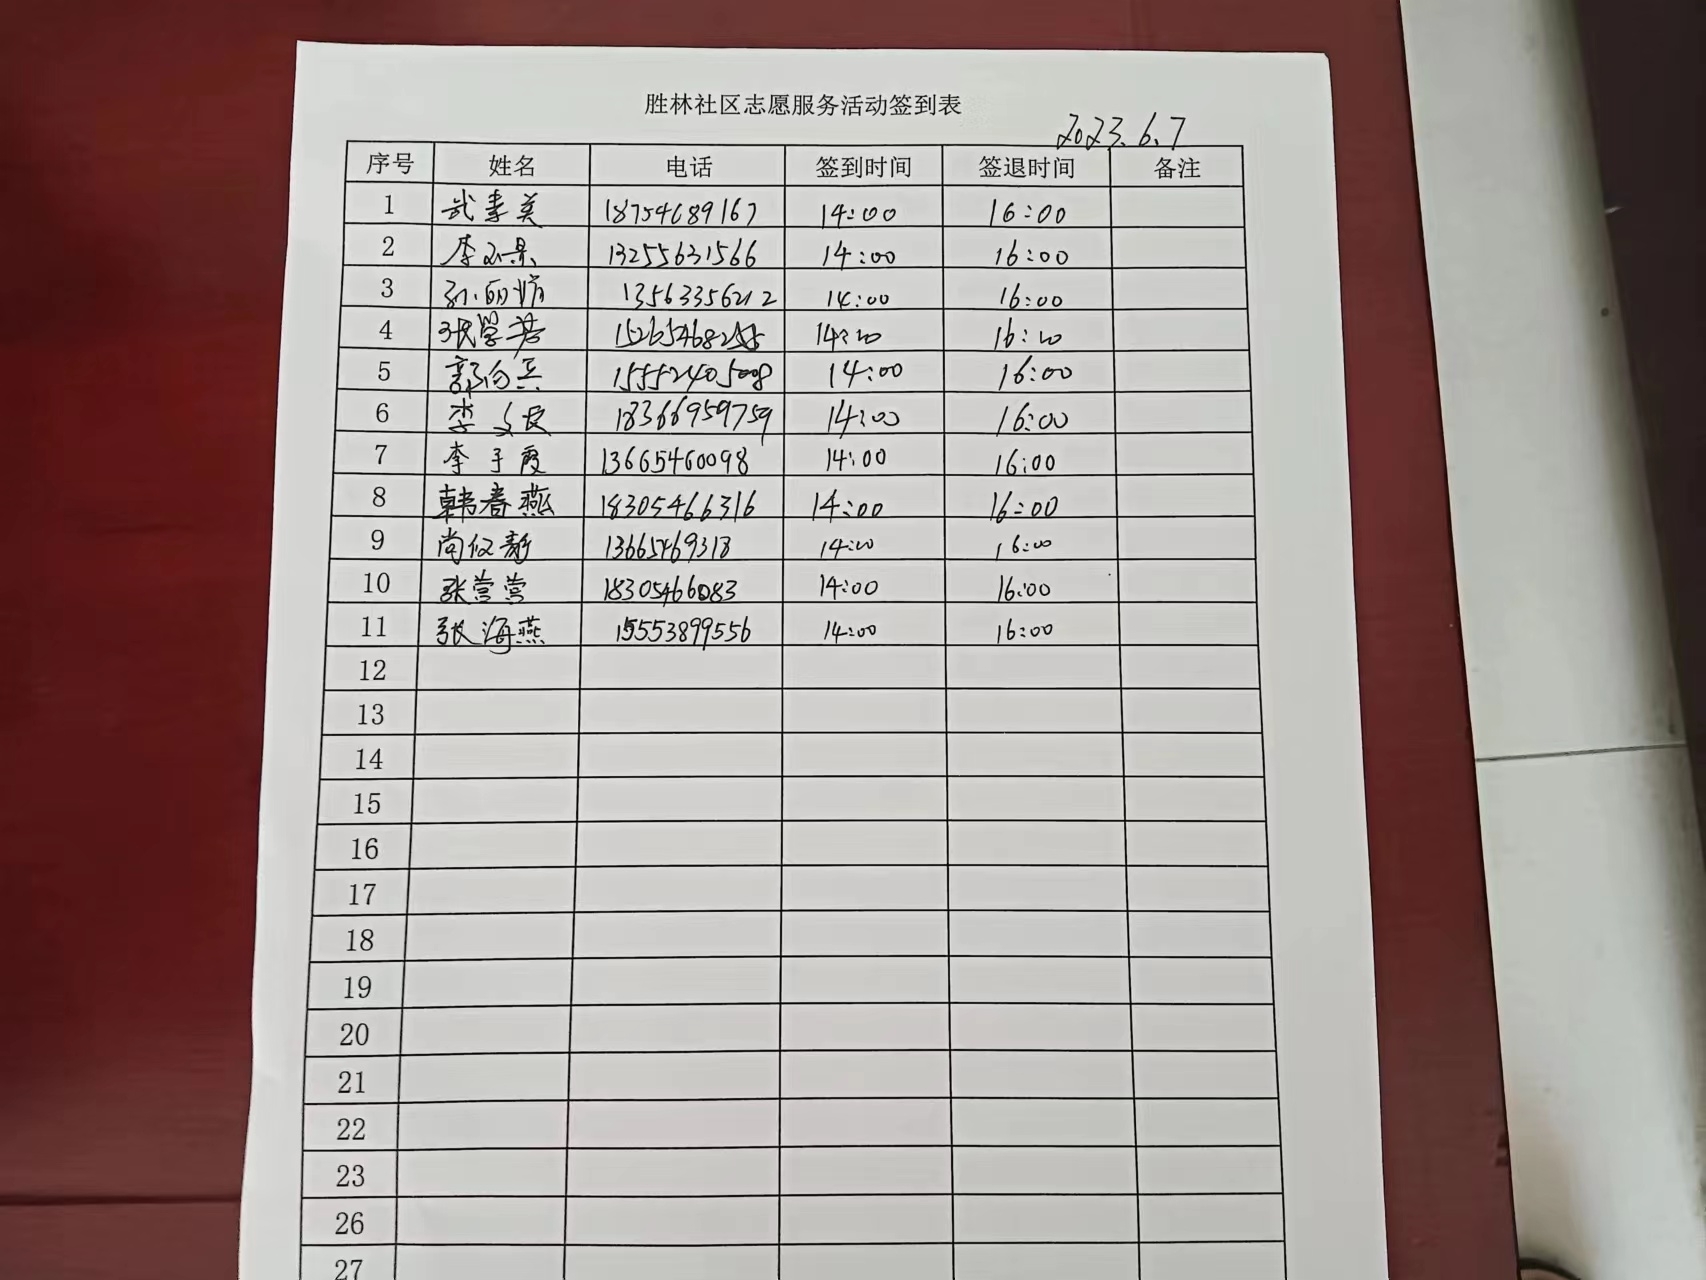 胜林社区志愿服务活动签到表
2023.6.7
序号 姓名 电话 签到时间 签退时间 备注
1 武素英 18754689167 14:00 16:00
2 李玉景 13255631566 14:00 16:00
3 孙丽娟 13563356212 14:00 16:00
4 张学芳 15265468255 14:00 16:00
5 15552405008 14:00 16:00
6 李文良 18366959759 14:00 16:00
7 李于霞 13665460098 14:00 16:00
8 韩春燕 18305466316 14:00 16:00
9 尚仪静 13665469318 14:00 16:00
10 张营营 18305466083 14:00 16:00
11 张海燕 15553899556 14:00 16:00
12
13
14
15
16
17
18
19
20
21
22
23
26
27